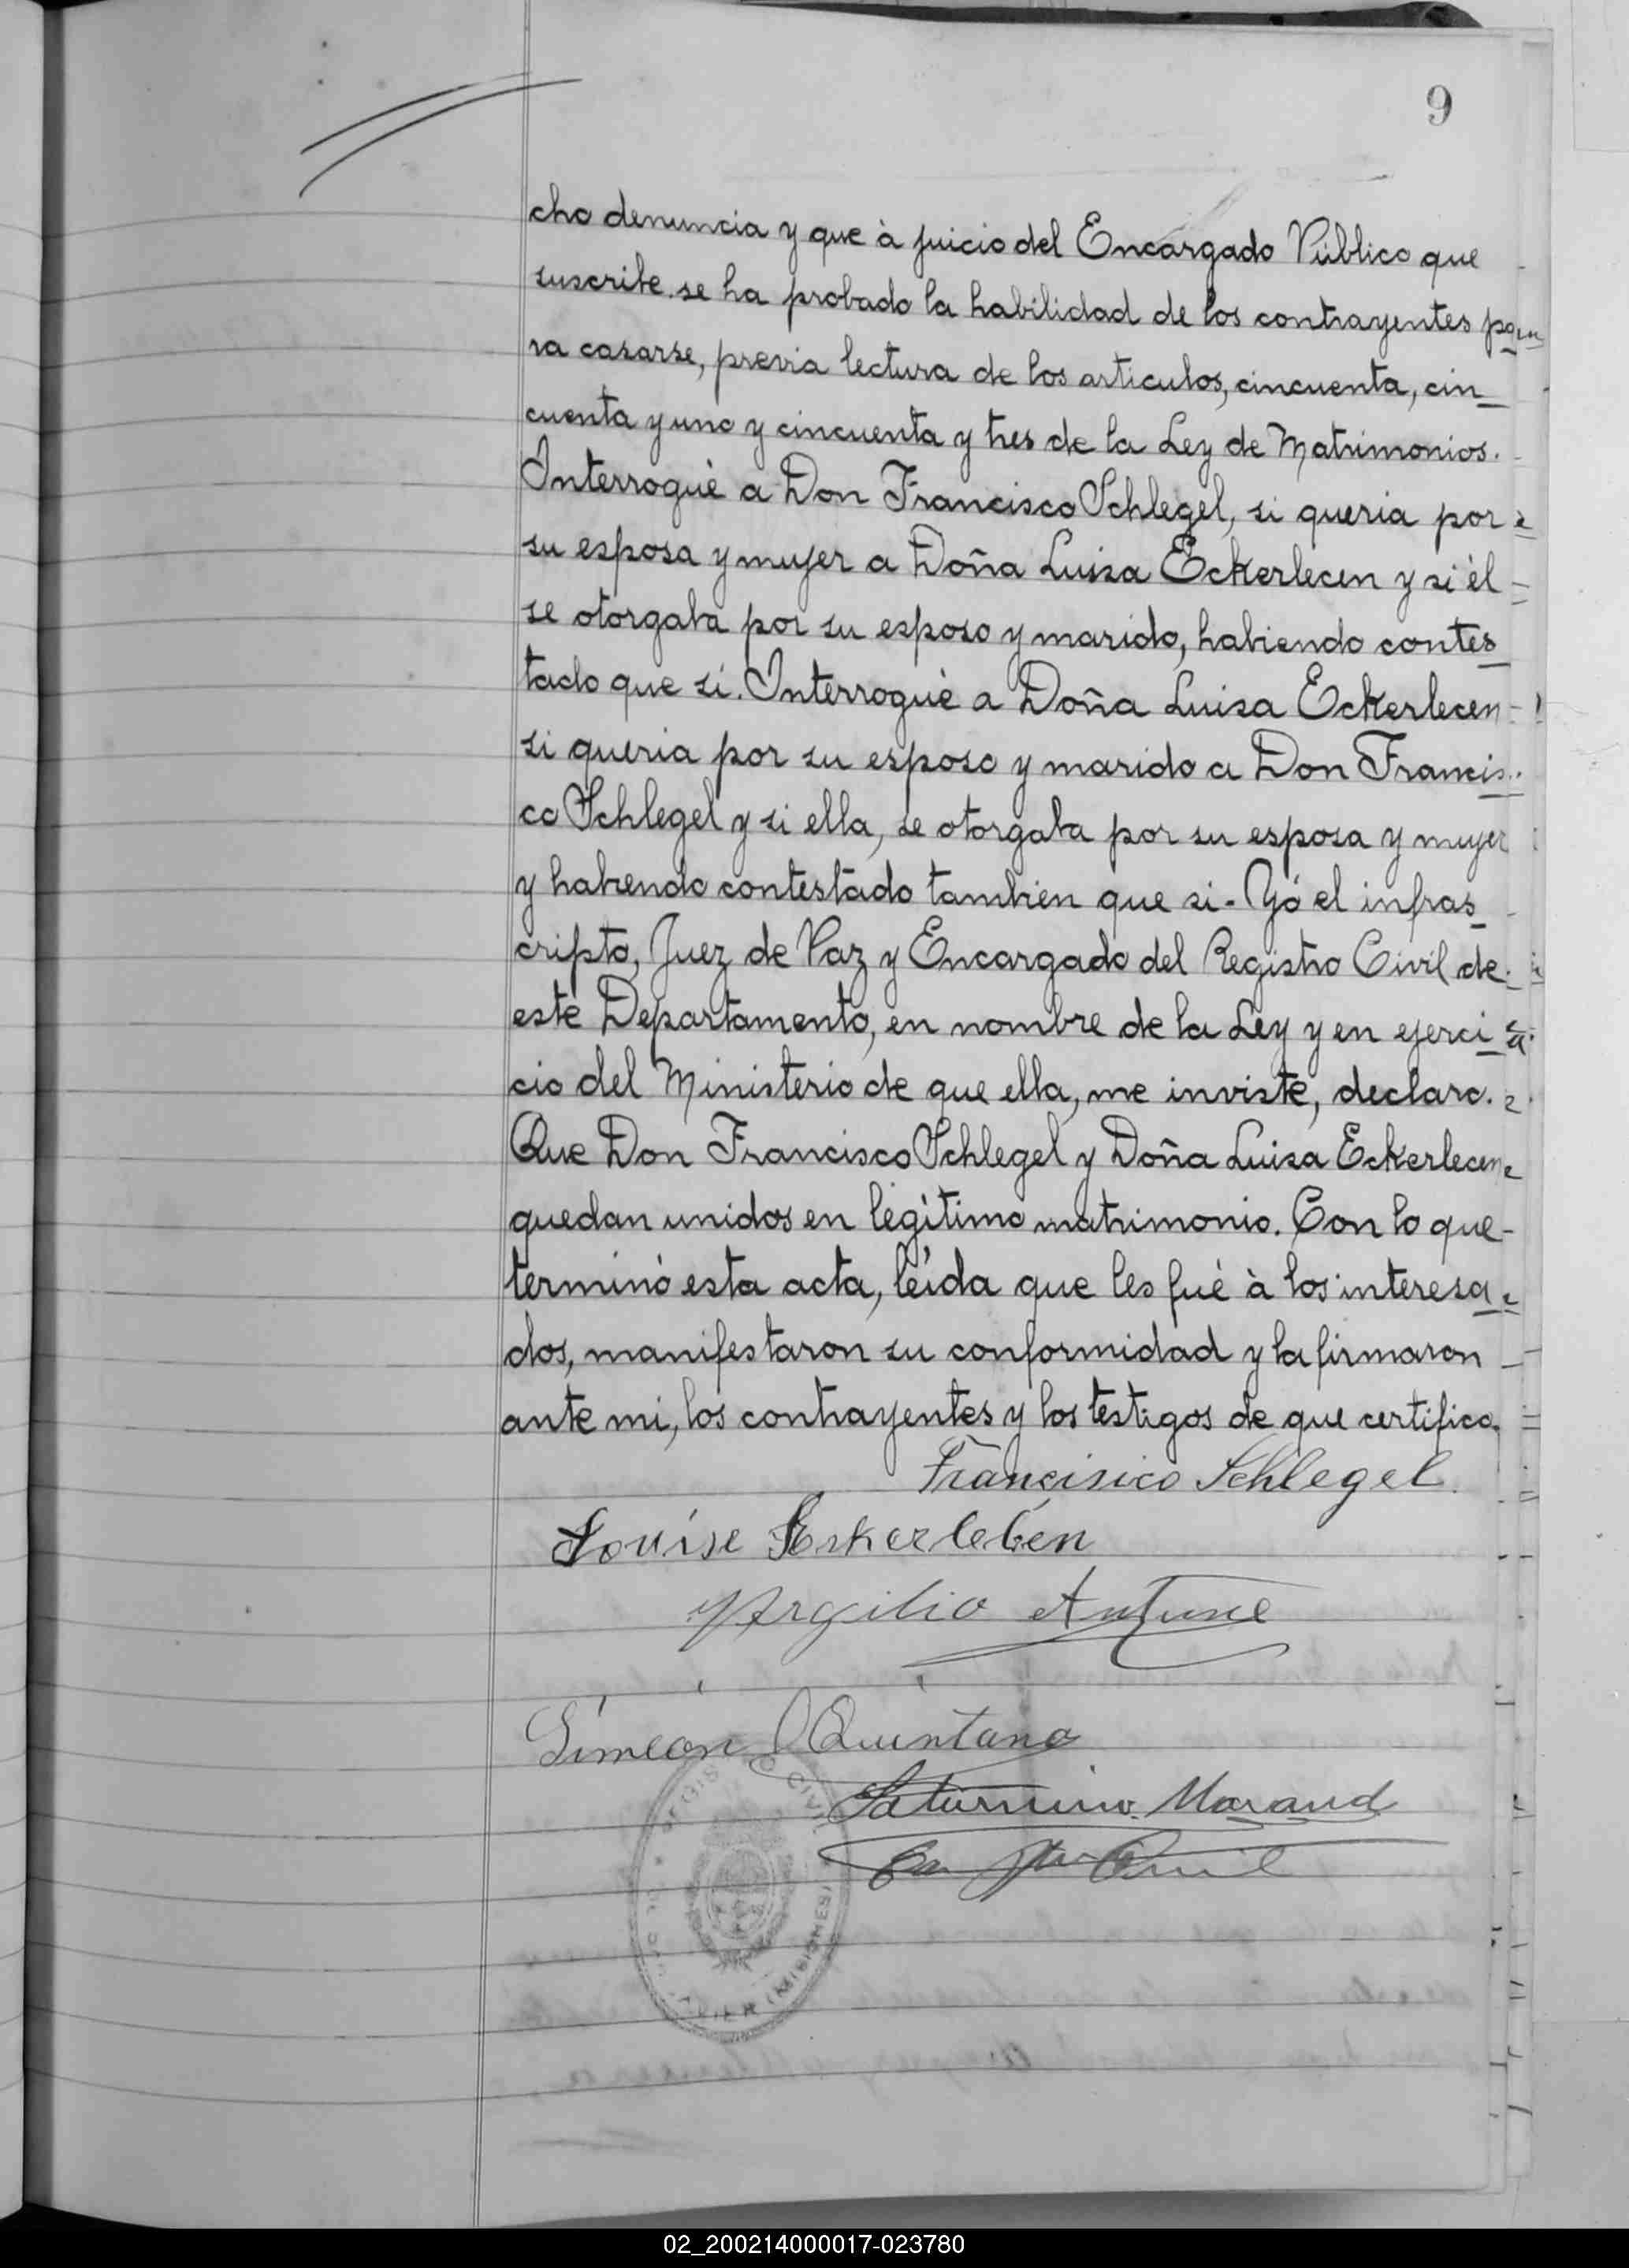 9
cho denuncia y que à juicio del Encargado Público que
suscribe se ha probado la habilidad de los contrayentes pa
ra casarse, previa lectura de los articulos, cincuenta, cin
cuenta y uno y cincuenta y tres de la Ley de Matrimonios.
Interroguè a Don Francisco Schlegel, si queria por
su esposa y mujer a Doña Luisa Eckerlecen y si èl
se otorgaba por su esposo y marido, habiendo contes
tado que si. Interroguè a Doña Luisa Eckerlecen
si queria por su esposo y marido a Don Francis
co Schlegel y si ella, se otorgaba por su esposa y mujer
y habiendo contestado tambien que si - Yó el infras
cripto, Juez de Paz y Encargado del Registro Civil de
este Departamento, en nombre de la Ley y en ejerci
cio del Ministerio de que ella, me inviste, declaro.
Que Don Francisco Schlegel y Doña Luisa Eckerlecen
quedan unidos en legítimo matrimonio. Con lo que
terminó esta acta, leída que les fué à los interesa
dos, manifestaron su conformidad y la firmaron
ante mi, los contrayentes y los testigos de que certifico.
Francisico Schlegel.
Louise Eskerleben
Virgilio Antune
Simeón Quintana
Saturnino Morand
REGISTRO CIVIL
JAVIER (MISIONES)
02_200214000017-023780